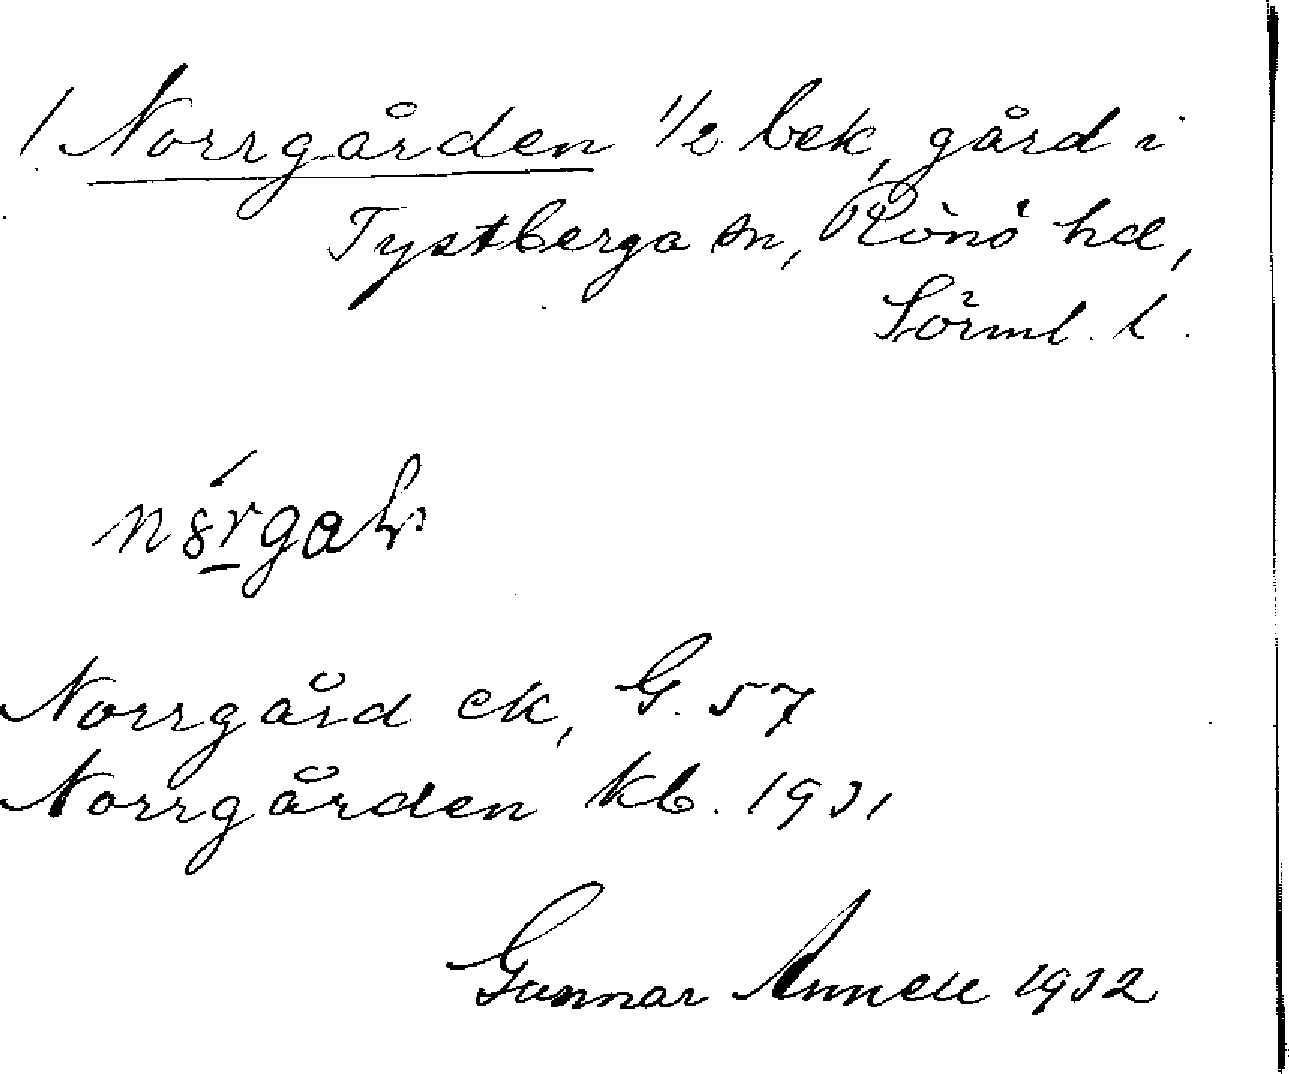 / Norrgården 1/2 bek, gård i
Tystberga sn, Rönö hd,
Sörml. l.
Norrgård ek, G. 57
Norrgården kb. 1931
Gunnar Annell 1932